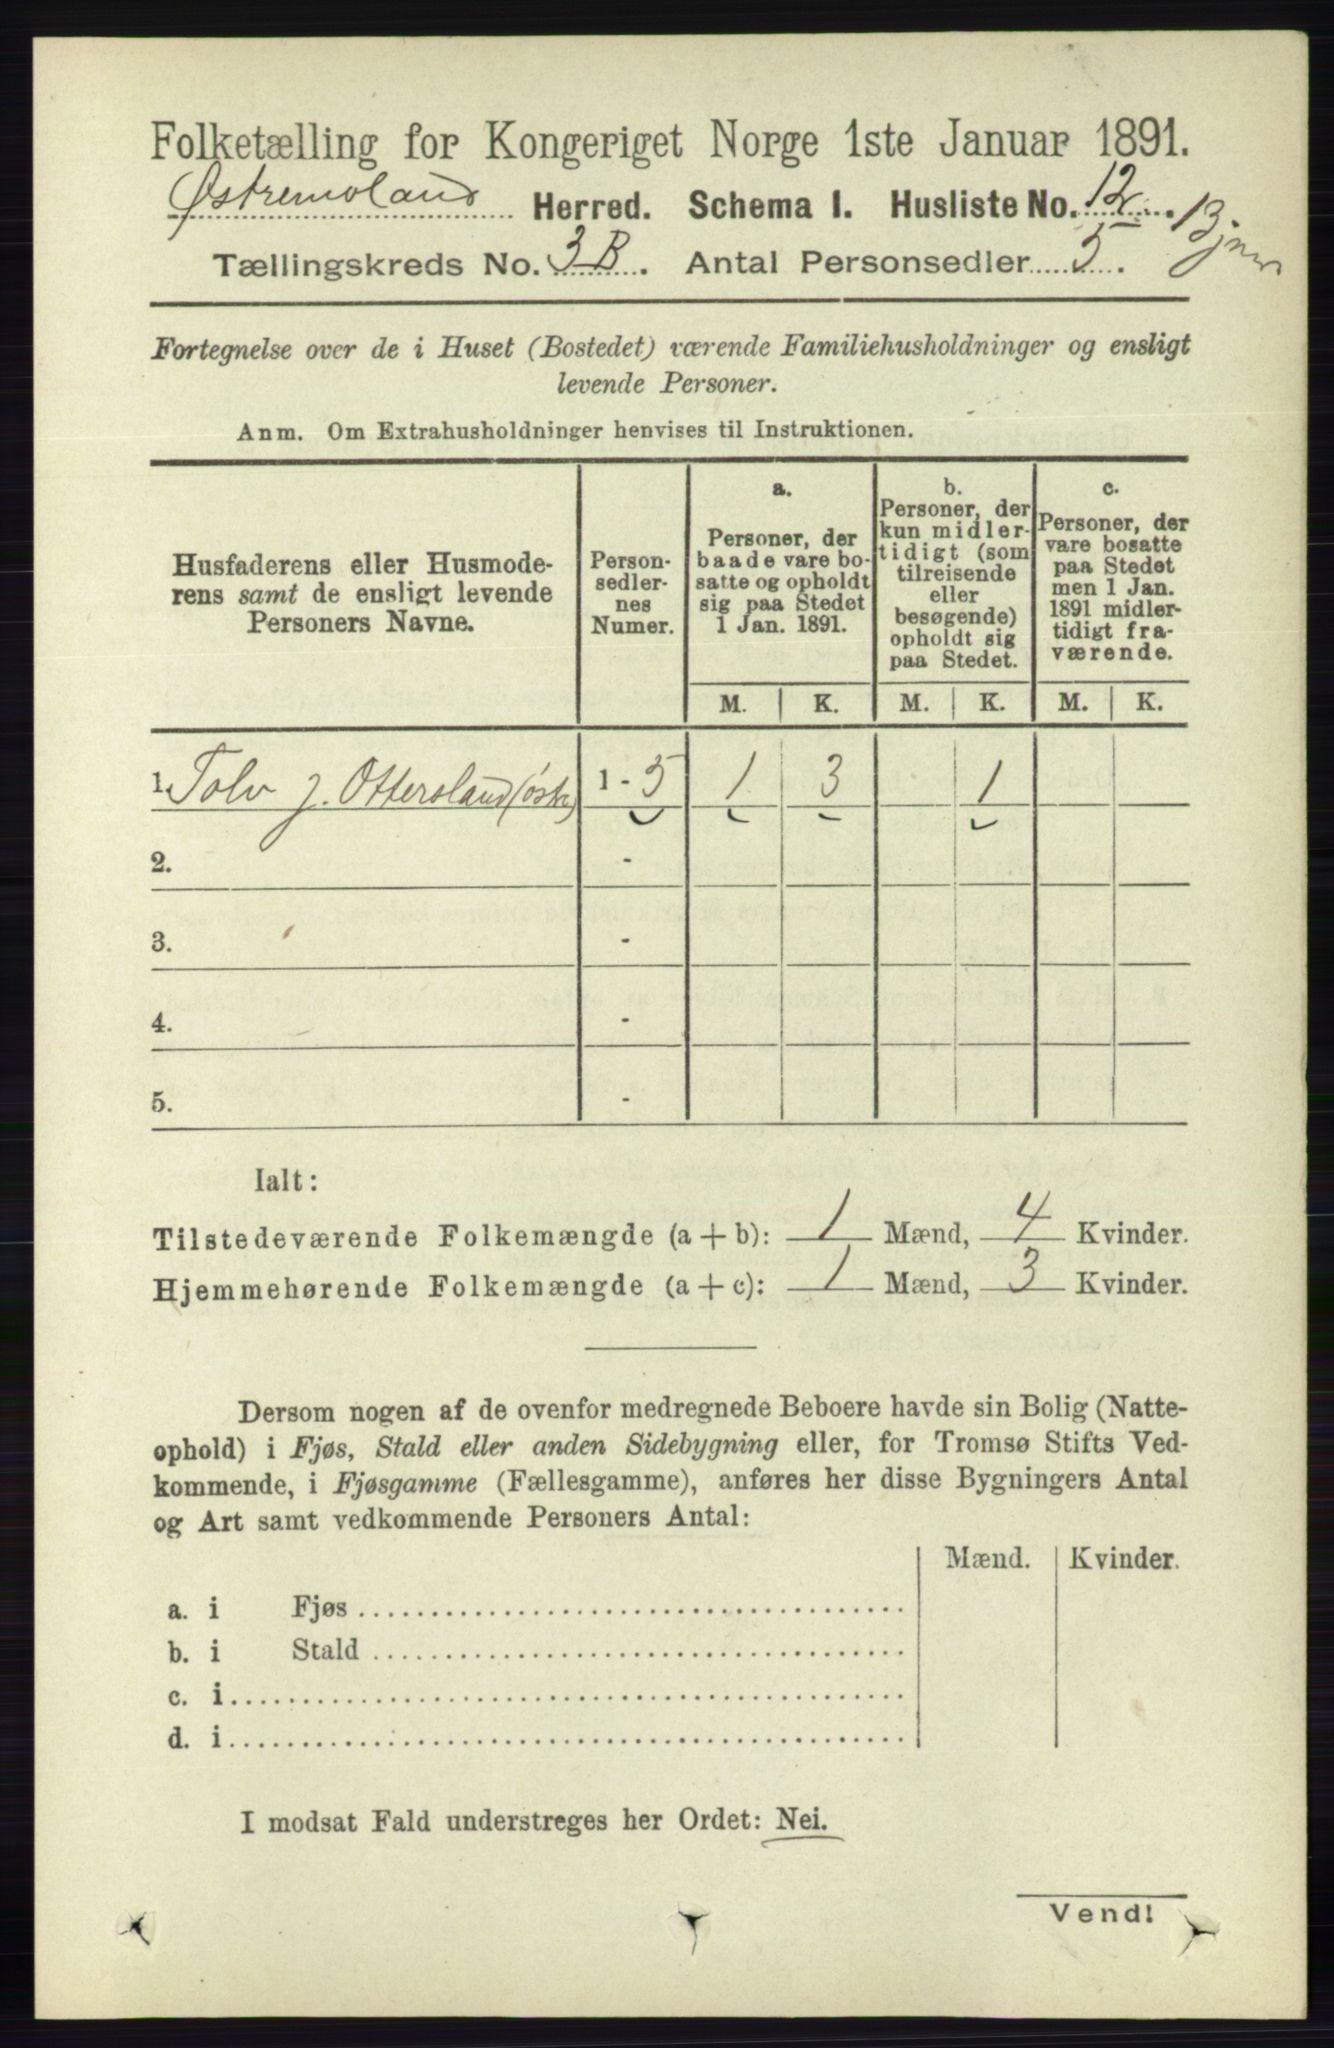 Folketælling for Kongeriget Norge 1ste Januar 1891.
Østremoland Herred. Schema I. Husliste No. 12.
Tællingskreds No. 3B. Antal Personsedler 5.
Fortegnelse over de i Huset (Bostedet) værende Familiehusholdninger og ensligt
levende Personer.
Anm. Om Extrahusholdninger henvises til Instruktionen.
Husfaderens eller Husmode-
rens samt de ensligt levende
Personers Navne.
Person-
sedler-
nes
Numer.
a.
Personer, der
baade vare bo-
satte og opholdt
sig paa Stedet
1 Jan. 1891.
b.
Personer, der
kun midler-
tidigt (som
tilreisende
eller
besøgende)
opholdt sig
paa Stedet.
c.
Personer, der
vare bosatte
paa Stedet
men 1 Jan.
1891 midler-
tidigt fra-
værende.
M. K. M. K. M. K.
1. Tolv J. Ottersland (østr) 1 - 5 1 3 1
2. -
3. -
4. -
5. -
Ialt:
Tilstedeværende Folkemængde (a + b): 1 Mænd, 4 Kvinder.
Hjemmehørende Folkemængde (a + c): 1 Mænd, 3 Kvinder.
Dersom nogen af de ovenfor medregnede Beboere havde sin Bolig (Natte-
ophold) i Fjøs, Stald eller anden Sidebygning eller, for Tromsø Stifts Ved-
kommende, i Fjøsgamme (Fællesgamme), anføres her disse Bygningers Antal
og Art samt vedkommende Personers Antal:
Mænd. Kvinder.
a. i Fjøs
b. i Stald
c. i
d. i
I modsat Fald understreges her Ordet: Nei.
Vend!